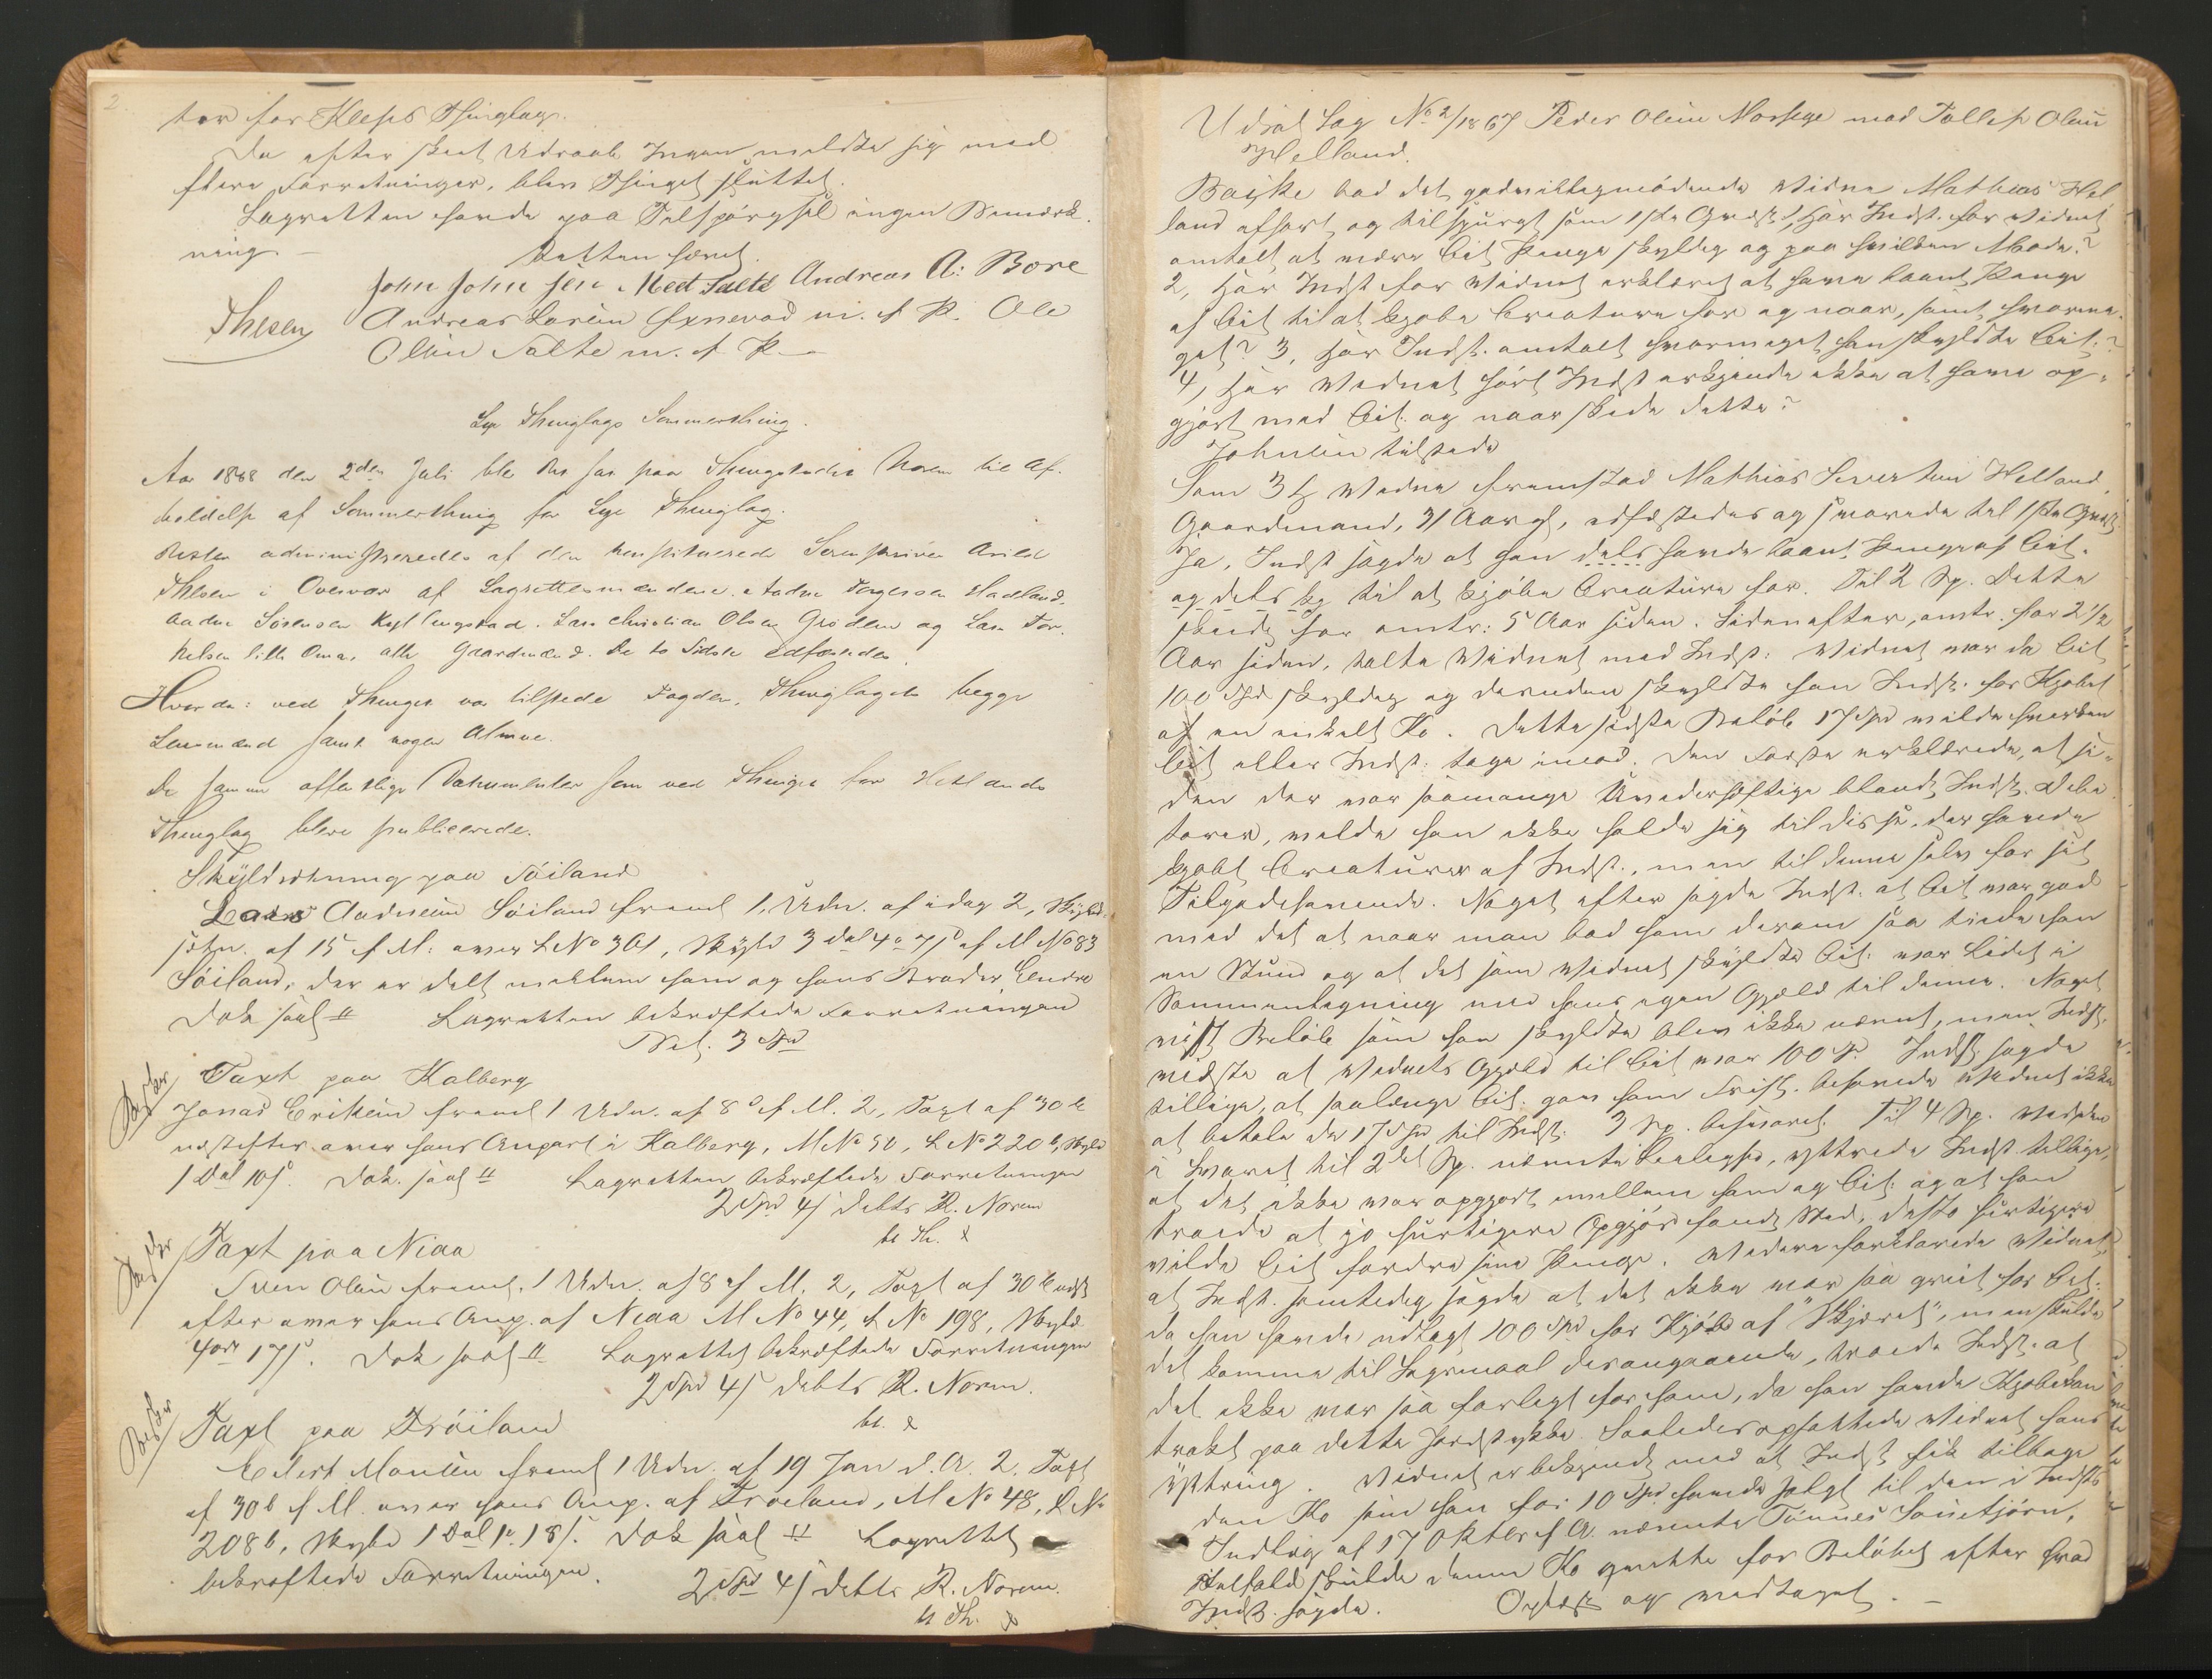 2.
ter for Kleps Thinglag.
Da efter skeet Udraab Ingen meldte sig med
flere Forretninger, blev Thinget sluttet.
Lagretten havde paa Tilspørgsel ingen Bemærk-
ning. - Retten hævet.
John Johnsen Meet Salte Andreas A: Bore
Thesen Andreas Larsen Øxnevad m. f. P. Ole
Olsen Salte m. f. P.
Lye Thinglags Sommerthing.
Aar 1868 den 2den Juli blev Ret sat paa Thingstedet Norem til Af-
holdelse af Sommerthing for Lye Thinglag.
Retten administreredes af den konstituerede Sorenskriver Arild
Thesen i Overvær af Lagrettesmændene Aadne Torgersen Hadland,
Aadne Sørensen Kyllingstad, Lars Christian Olsen Grødem og Lars Tor-
kelsen lille Oma, alle Gaardmænd. De to Sidste edfæstedes.
Hvorda: ved Thinget var tilstede Fogden, Thinglagets begge
Lensmænd samt nogen Almue.
De samme offentlige Dokumenter som ved Thinget for Hetlands
Thinglag bleve publicerede.
Skyldsætning paa Söiland
Lars Aadnesen Söiland freml 1, Udn. af idag 2, Skyld-
sætn. af 15 f. M. over L No 301, Skyld 3 dal 4 o 7 s af M No 83
Söiland, der er delt mellem ham og hans Broder Endre
Dok saal Lagretten bekræftede Forretningen
Bet. 3 Spd
Taxt paa Kalberg
Jonas Eriksen freml 1 Udn. af 8 f. M. 2, Taxt af 30 s
næstefter over hans Anpart i Kalberg, M No 50, L No 220 b, Skyld
1 Dal 10 s. Dok. saal Lagretten bekræftede Forretningen
2 Spd 4 s debts R. Norem
bt Th.
Taxt paa Niaa
Sven Olsen freml. 1 Udn. af 8 f. M. 2, Taxt af 30 s næst
efter over hans Anp. af Niaa M No 44, L No 198, Skyld
4 ort 17 s. Dok saal Lagrettet bekræftede Forretningen
2 Spd 4 s debts R. Norem.
bt.
Taxt paa Fröiland
Eilert Monsen freml 1 Udn. af 19 Jan d. A. 2. Taxt
af 30 s f. M. over hans Anp. af Froeland, M No 48, L No
208 b, Skyld 1 Dal 1 o 18 s. Dok saal Lagrettet
bekræftede Forretningen. 2 Spd 4 s debts R. Norem.
bt Th.
Udsat Sag No 2/1867 Peder Olsen Norheye mod Tollef Olsen
Helland.
Bajke bad det godvilligmödende Vidne Mathias Hel
land afhørt og tilspurgt som 1ste Qvæst: Har Indst. for Vidnet
omtalt at være Cit Penge skyldig og paa hvilken Maade?
2, Har Indst for Vidnet erklæret at have laant Penge
af Cit til at kjøbe Creature for og naar, samt hvorme-
get? 3, Har Indst. omtalt hvormeget han skyldte Cit.?
4, Har Vidnet hørt Indst erkjende ikke at have op-
gjort med Cit: og naar skede dette?
Johnsen tilstede
Som 3die Vidne fremstod Mathias Sivertsen Helland,
Gaardmand, 31 Aar gl, edfæstedes og svarede til 1ste Qvæst:
Ja, Indst sagde at han dels havde laant Penge af Cit.
og dels kg til at kjøbe Creature for. Til 2 Sp. Dette
skede for omtr: 5 Aar siden. Sidenefter, omtr. for 2 1/2
Aar siden, talte Vidnet med Indst: Vidnet var da Cit
100 Spd skyldig og desuden skyldte han Indst. for Kjøbet
af en enkelt Ko. Dette sidste Beløb 17 Spd vilde hverken
Cit eller Indst. tage imod. Den Første erklærede, at si-
den der var saamange Uvederhæftige blandt Indst. Debi
torer, vilde han ikke holde sig til disse, der havde
kjøbt Creaturer af Indst., men til denne selv for sit
Tilgodehavende. Noget efter sagde Indst. at Cit var god
med det at naar man bad ham derom saa tiede han
en Stund og at det som Vidnet skyldte Cit: var Lidet i
Sammenligning med hans egen Gjæld til denne. Noget
vist Beløb som han skyldte blev ikke nævnt, men Indst.
vidste at Vidnets Gjæld til Cit var 100 Sp. Indst sagde
tillige, at saalænge Cit. gav ham Frist. behøvede Vidnet ikke
at betale de 17 Spd til Indst. 3 Sp. besvaret. Til 4 Sp. Ved den
i Svaret til 2det Sp. nævnte Leilighed, yttrede Indst. tillige,
at det ikke var opgjort mellem ham og Cit: og at han
troede at jo hurtigere Opgjör fandt Sted, desto hurtigere
vilde Cit fordre sine Penge. Videre forklarede Vidnet
at Indst. samtidig sagde at det ikke var saa greit for Cit.
da han havde udlagt 100 Spd for Kjöb af "Skjæret", men skulde
det komme til Søgsmaal derangaaende, troede Indst. at
det ikke var saa farligt for ham, da han havde Kjøbekon
trakt paa dette Jordstykke. Saaledes opfattede Vidnet hans
Yttring. Vidnet er bekjendt med at Indst fik tilbage
den Ko som han for 10 Spd havde solgt til den i Indsts
Indlæg af 17 Oktbr f A. nævnte Tönnes Souetjörn,
ialfald skulde denne Ko gaa for Beløbet efter hvad
Indst. sagde. Oplæst og vedtaget. -